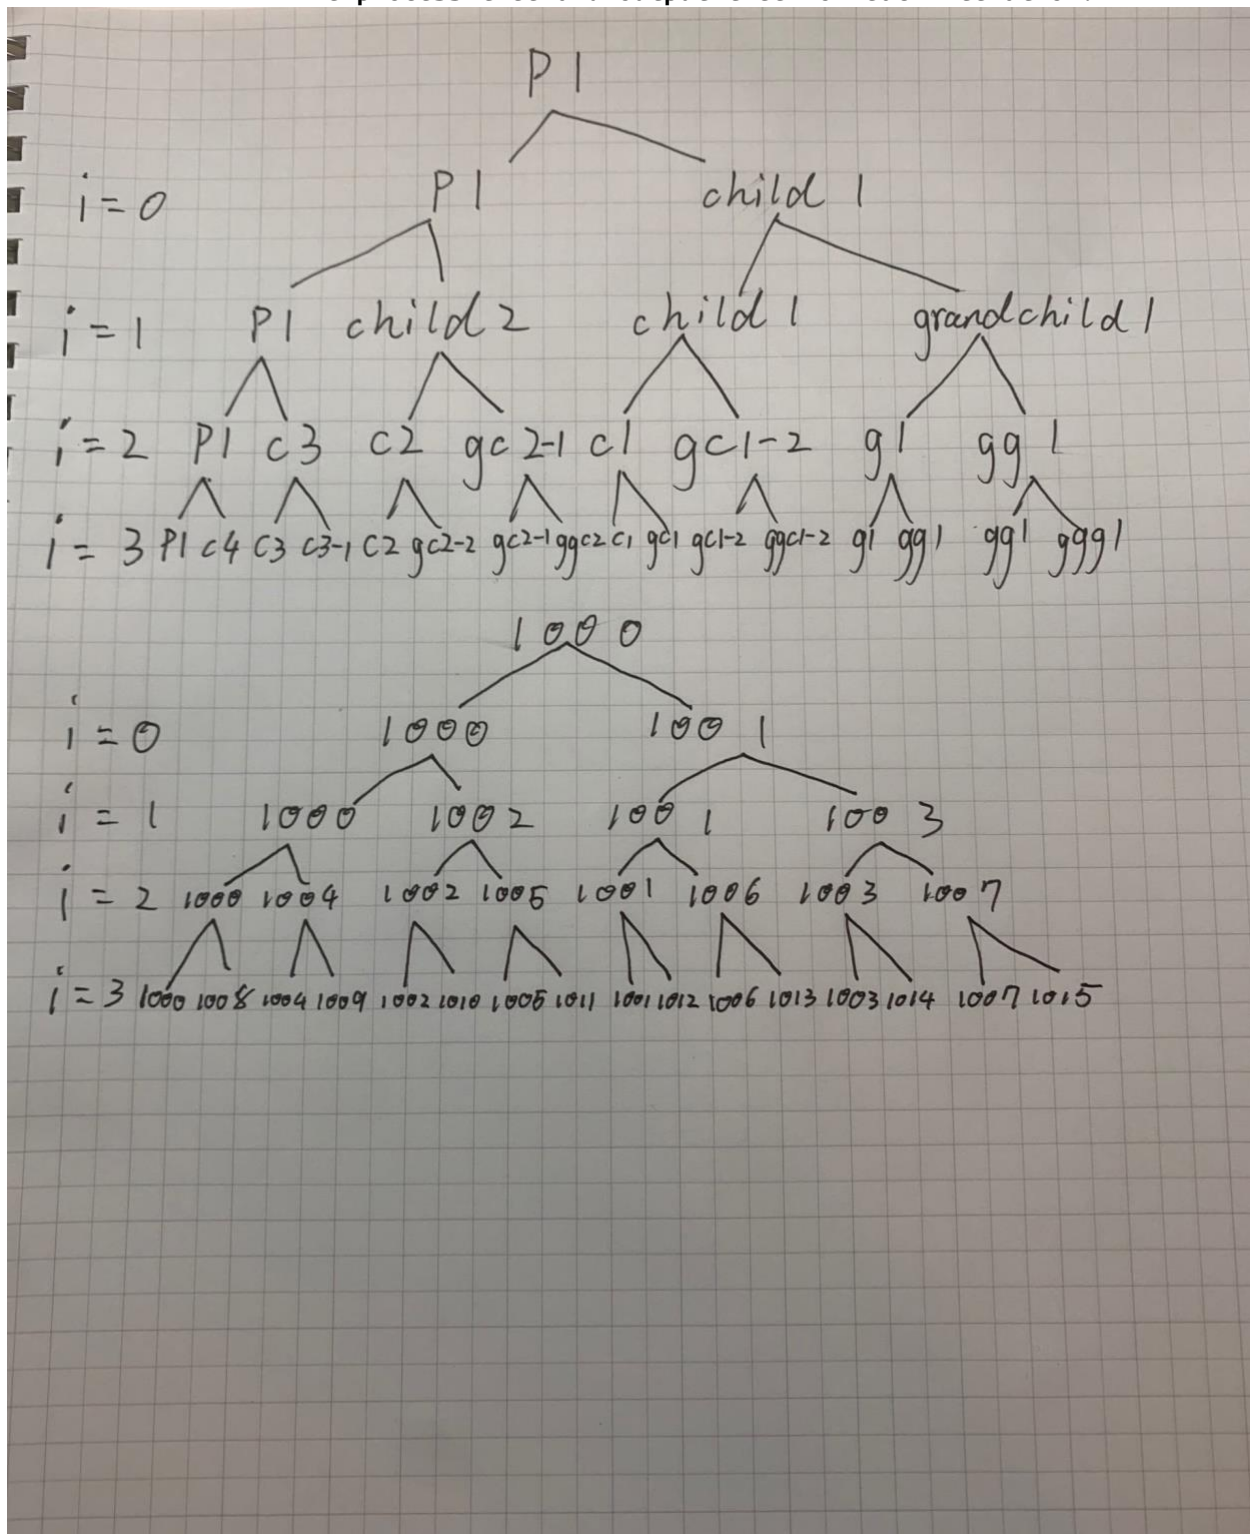 P1
i=0 P1 child 1
i=1 P1 child 2 child 1 grandchild 1
i=2 P1 c3 c2 gc2-1 c1 gc1-2 g1 gg1
i=3 P1 c4 c3 c3-1 c2 gc2-2 gc2-1 ggc2 c1 gc1 gc1-2 ggc1-2 g1 gg1 gg1 ggg1
1000
i=0 1000 1001
i=1 1000 1002 1001 1003
i=2 1000 1004 1002 1005 1001 1006 1003 1007
i=3 1000 1008 1004 1009 1002 1010 1005 1011 1001 1012 1006 1013 1003 1014 1007 1015